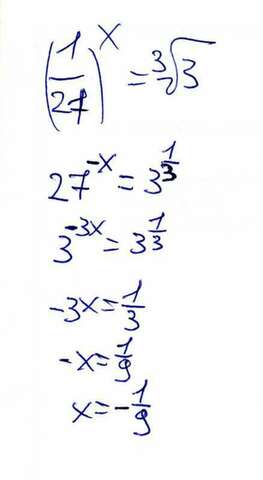 (1/27)^x = ∛3
27^-x = 3^1/3
3^-3x = 3^1/3
-3x = 1/3
-x = 1/9
x = -1/9